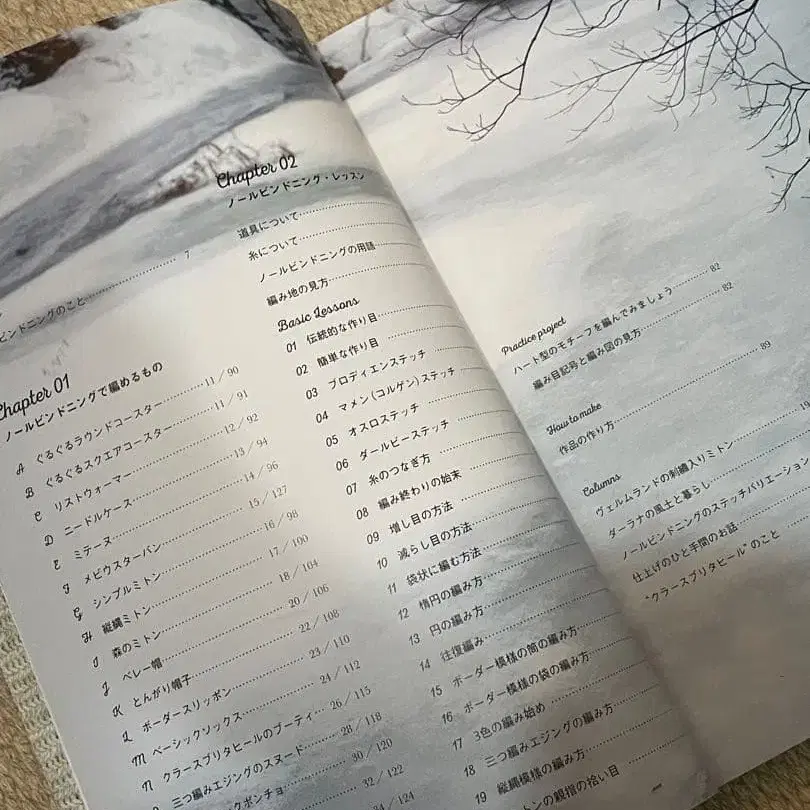 ビンドニングのこと 7
Chapter 01
ノールビンドニングで編めるもの
A ぐるぐるラウンドコースター 11／90
B ぐるぐるスクエアコースター 11／91
C リストウォーマー 12／92
D ニードルケース 13／94
E ミテーヌ 14／96
F メビウスターバン 15／127
G シンプルミトン 16／98
H 縦縄ミトン 17／100
I 森のミトン 18／104
J ベレー帽 20／106
K とんがり帽子 22／108
L ボーダースリッポン 23／110
M ベーシックソックス 24／112
N クラースブリタヒールのブーティ 26／115
三つ編みエジングのスヌード 28／118
クポンチョ 30／120
32／122
34／124
Chapter 02
ノールビンドニング・レッスン
道具について
糸について
ノールビンドニングの用語
編み地の見方
Basic Lessons
01 伝統的な作り目
02 簡単な作り目
03 ブロディエンステッチ
04 マメン（コルゲン）ステッチ
05 オスロステッチ
06 ダールビーステッチ
07 糸のつなぎ方
08 編み終わりの始末
09 増し目の方法
10 減らし目の方法
11 袋状に編む方法
12 楕円の編み方
13 円の編み方
14 往復編み
15 ボーダー模様の筒の編み方
16 ボーダー模様の袋の編み方
17 3色の編み始め
18 三つ編みエジングの編み方
19 縦縄模様の編み方
トンの親指の拾い目
Practice project
ハート型のモチーフを編んでみましょう 82
編み目記号と編み図の見方 82
How to make
作品の作り方 89
Columns
ヴェルムランドの刺繍入りミトン
ダーラナの風土と暮らし
ノールビンドニングのステッチバリエーション
仕上げのひと手間のお話
“クラースブリタヒール”のこと